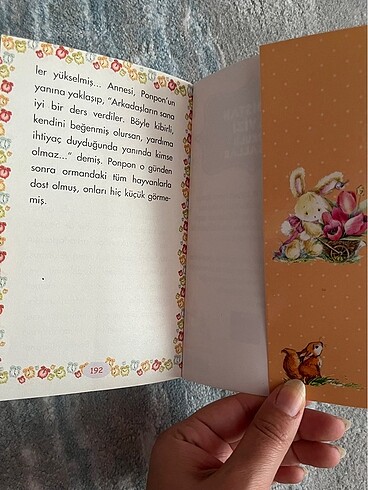 ler yükselmiş... Annesi, Ponpon'un
yanına yaklaşıp, "Arkadaşların sana
iyi bir ders verdiler. Böyle kibirli,
kendini beğenmiş olursan, yardıma
ihtiyaç duyduğunda yanında kimse
olmaz..." demiş. Ponpon o günden
sonra ormandaki tüm hayvanlarla
dost olmuş, onları hiç küçük görme-
miş.
192